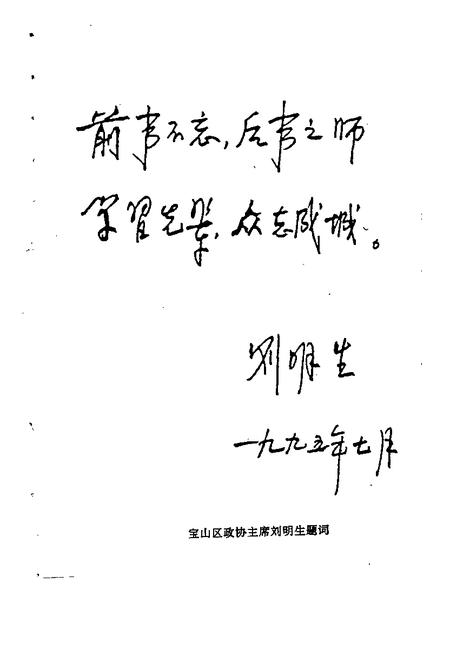 前事不忘，后事之师
学習先辈，众志成城。
刘明生
一九九五年七月
宝山区政协主席刘明生题词